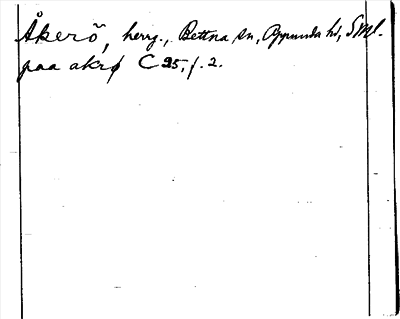 Åkerö, herrg., Bettna sn, Oppunda hd, Sml.
paa akrø C 25, f. 2.